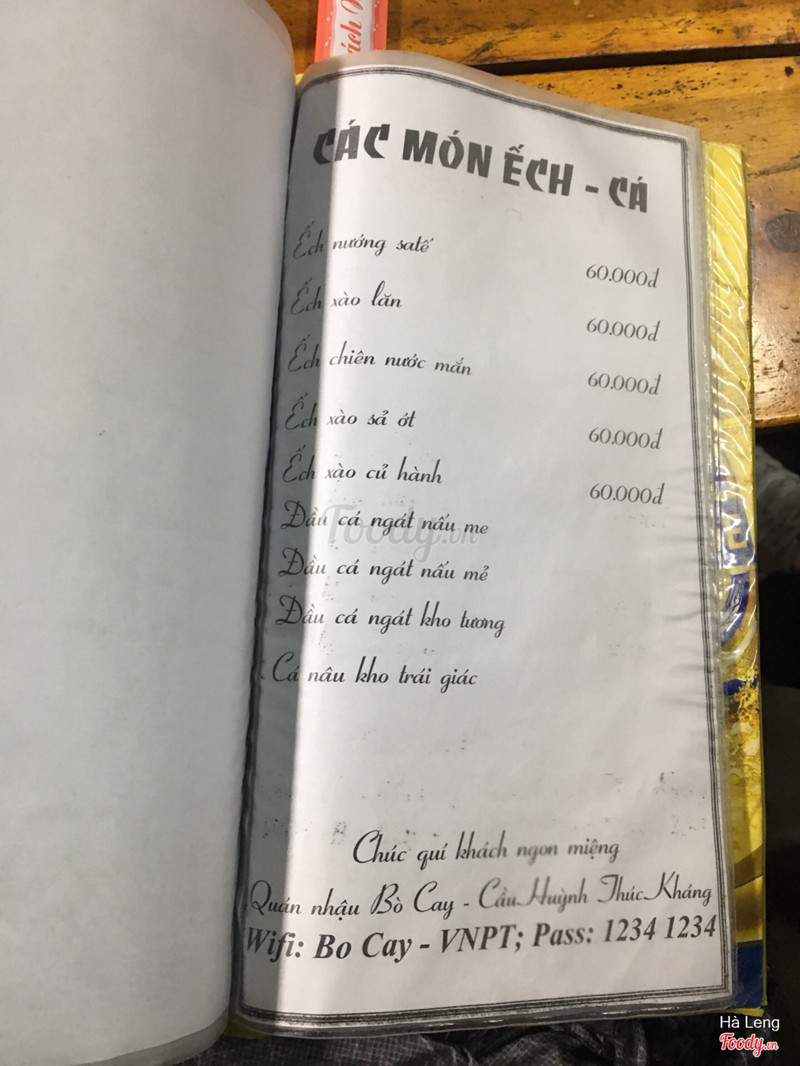 ách
CÁC MÓN ẾCH - CÁ
Ếch nướng satế
60.000đ
Ếch xào lăn
60.000đ
Ếch chiên nước mắn
60.000đ
Ếch xào sả ớt
60.000đ
Ếch xào củ hành
60.000đ
Đầu cá ngát nấu me
Foody.vn
Đầu cá ngát nấu mẻ
Đầu cá ngát kho tương
Cá nâu kho trái giác
Chúc quí khách ngon miệng
Quán nhậu Bò Cay - Cầu Huỳnh Thúc Kháng
Wifi: Bo Cay - VNPT; Pass: 1234 1234
Hà Leng
Foody.vn